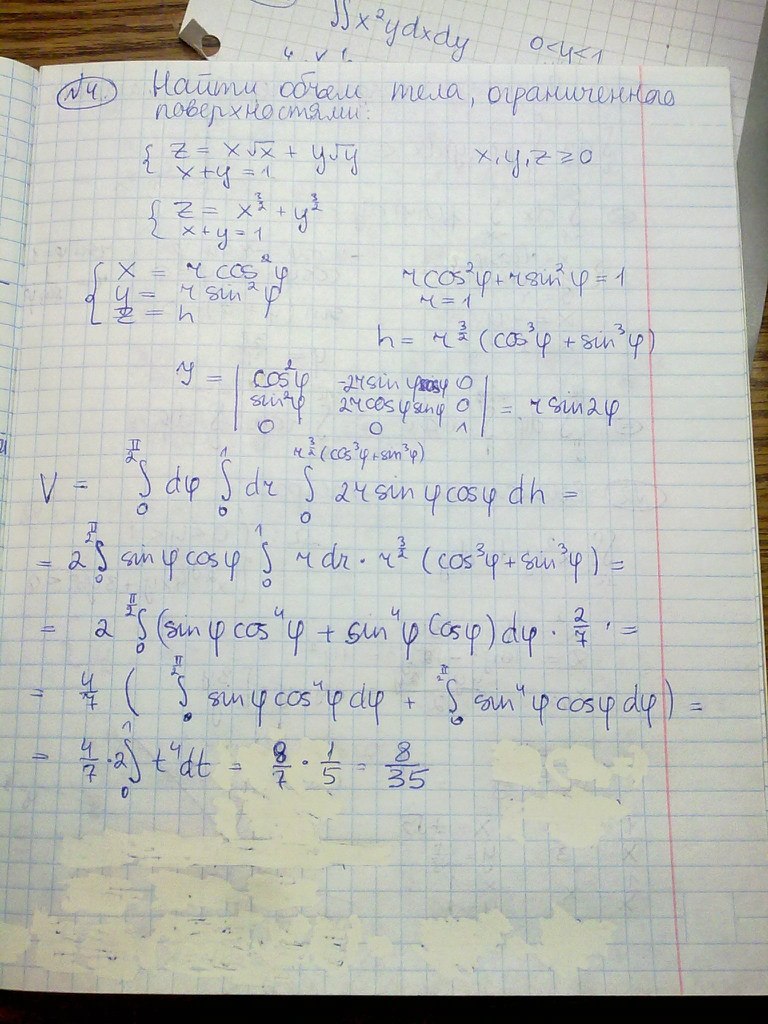 ∬x²ydxdy 0<y<1
№4. Найти объем тела, ограниченного
поверхностями:
{ z = x√x + y√y x,y,z ≥ 0
x+y = 1
{ z = x^{3/2} + y^{3/2}
x+y = 1
{ x = r cos²φ r cos²φ + r sin²φ = 1
y = r sin²φ r = 1
z = h
h = r^{3/2} (cos³φ + sin³φ)
J = | cos²φ -2r sinφ cosφ 0 |
| sin²φ 2r cosφ sinφ 0 | = r sin2φ
| 0 0 1 |
V = ∫_0^{π/2} dφ ∫_0^1 dr ∫_0^{r^{3/2}(cos³φ+sin³φ)} 2r sinφ cosφ dh =
= 2 ∫_0^{π/2} sinφ cosφ ∫_0^1 r dr · r^{3/2} (cos³φ + sin³φ) =
= 2 ∫_0^{π/2} (sinφ cos⁴φ + sin⁴φ cosφ) dφ · 2/7 · =
= 4/7 ( ∫_0^{π/2} sinφ cos⁴φ dφ + ∫_0^{π/2} sin⁴φ cosφ dφ ) =
= 4/7 · 2 ∫_0^1 t⁴dt = 8/7 · 1/5 = 8/35